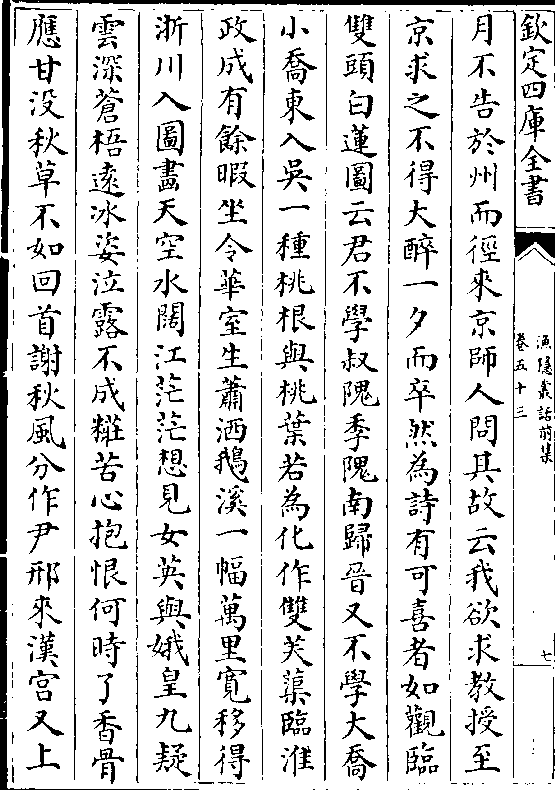 欽定四庫全書
漁隱叢話前集
卷五十三
七
月不告於州而徑來京師人問其故云我欲求教授至
京求之不得大醉一夕而卒然為詩有可喜者如觀臨
雙頭白蓮圖云君不學叔隗季隗南歸晉又不學大喬
小喬東入吳一種桃根與桃葉若為化作雙芙蕖臨淮
政成有餘暇坐令華室生蕭洒鵝溪一幅萬里寛移得
浙川入圖畫天空水闊江茫茫想見女英與娥皇九疑
雲深蒼梧逺冰姿泣露不成糚苦心抱恨何時了香骨
應甘没秋草不如回首謝秋風分作尹邢來漢宫又上